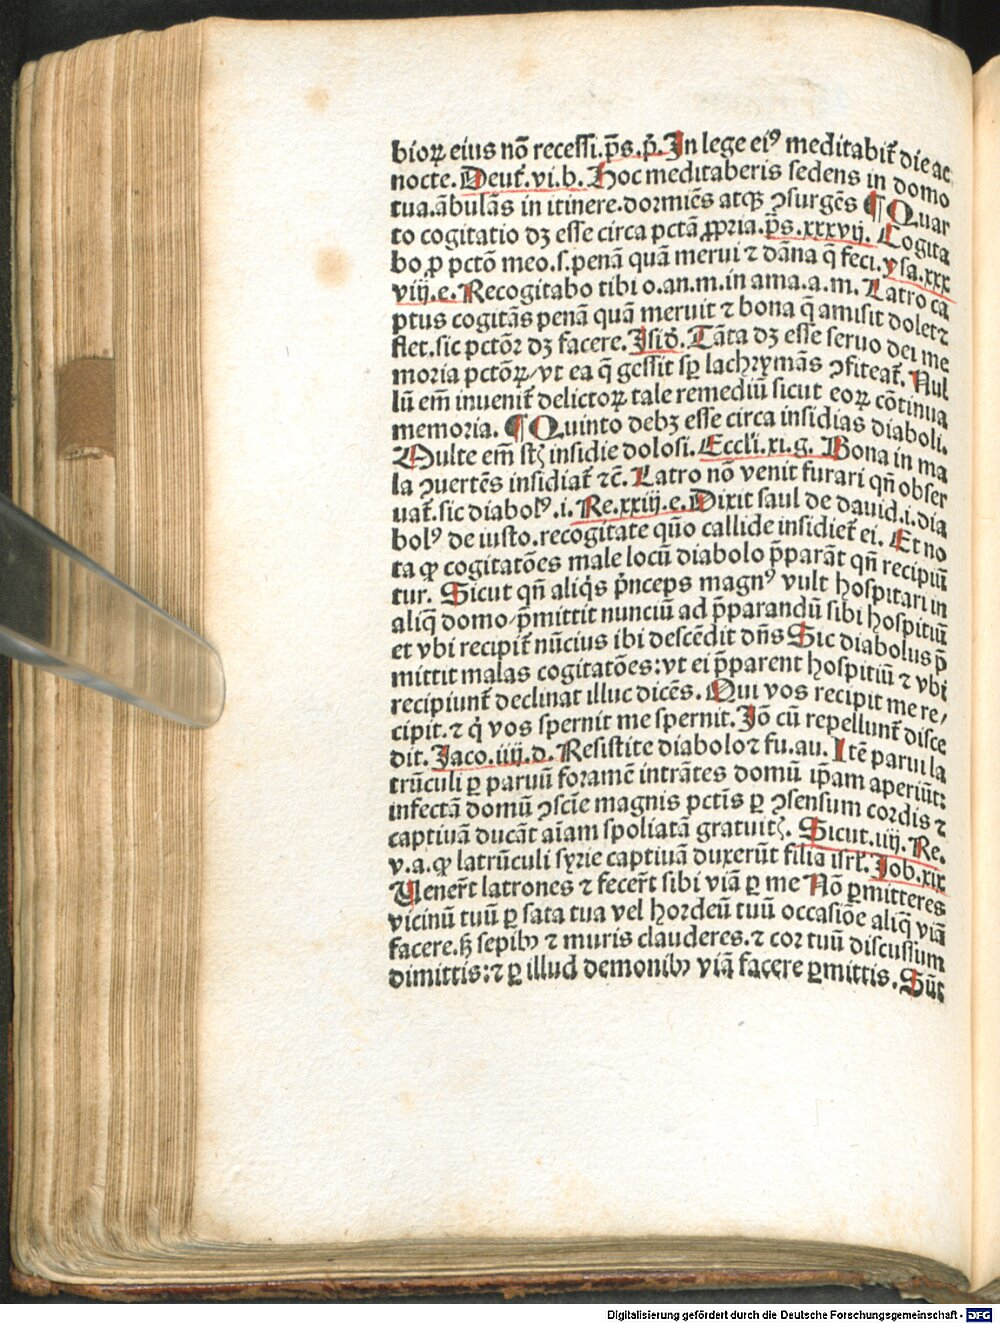 bioꝝ eius nō recessi.p̄s.p̄. In lege eiꝰ meditabit̄ die ac
nocte. Deut̄.vi.b. Hoc meditaberis sedens in domo
tua.ābulās in itinere.dormiēs atqꝫ ꝯsurgēs ¶ Quar
to cogitatio dꝫ esse circa pctā ꝓpria.p̄s.xxxvij. Cogita
bo ꝓ pctō meo.s.penā quā merui ⁊ dāna q̄ feci.ysa.xxx
viij.e. Recogitabo tibi o.an.m.in ama.a.m. Latro ca
ptus cogitās penā quā meruit ⁊ bona q̄ amisit dolet ⁊
flet.sic pctōꝛ dꝫ facere. Isid̄. Tāta dꝫ esse seruo dei me
moria pctōꝝ/vt ea q̄ gessit sꝑ lachrymās ꝯfiteat̄. Nul
lū em̄ inuenit̄ delictoꝝ tale remediū sicut eoꝝ cōtinua
memoria. ¶ Quinto debꝫ esse circa insidias diaboli.
Multe em̄ st̄ insidie dolosi. Eccli.xi.g. Bona in ma
la ꝯuertēs insidiat̄ ⁊c̄. Latro nō venit furari qn̄ obser
uat̄.sic diabolꝰ.i. Re.xxiij.e. Dixit saul de dauid.i.dia
bolꝰ de iusto.recogitate quō callide insidiet̄ ei. Et no
ta ꝙ cogitatōes male locū diabolo p̄parāt qn̄ recipiū
tur. Sicut qn̄ aliq̄s p̄nceps magnꝰ vult hospitari in
aliq̄ domo/p̄mittit nunciū ad p̄parandū sibi hospitiū
et vbi recipit̄ nūcius ibi descēdit dn̄s Sic diabolus p̄
mittit malas cogitatōes:vt ei p̄parent hospitiū ⁊ vbi
recipiunt̄ declinat illuc dicēs. Qui vos recipit me re/
cipit.⁊ q̇ vos spernit me spernit. Iō cū repellunt̄ disce
dit. Jaco.iiij.d. Resistite diabolo ⁊ fu.au. Itē parui la
trūculi ꝑ paruū foramē intrātes domū ip̄am aperiūt:
infectā domū ꝯscīe magnis pctīs ꝑ ꝯsensum cordis ⁊
captiuā ducāt aīam spoliatā gratuit̄. Sicut.iiij. Re.
v.a.ꝙ latrūculi syrie captiuā duxerūt filia isrl̄. Job.xix
Uener̄t latrones ⁊ fecer̄t sibi viā ꝑ me Nō ꝑmitteres
vicinū tuū ꝑ sata tua vel hordeū tuū occasiōe aliq̄ viā
facere.ß sepibꝫ ⁊ muris clauderes.⁊ cor tuū discussum
dimittis:⁊ ꝑ illud demonibꝫ viā facere ꝑmittis. Sūt
Digitalisierung gefördert durch die Deutsche Forschungsgemeinschaft - DFG